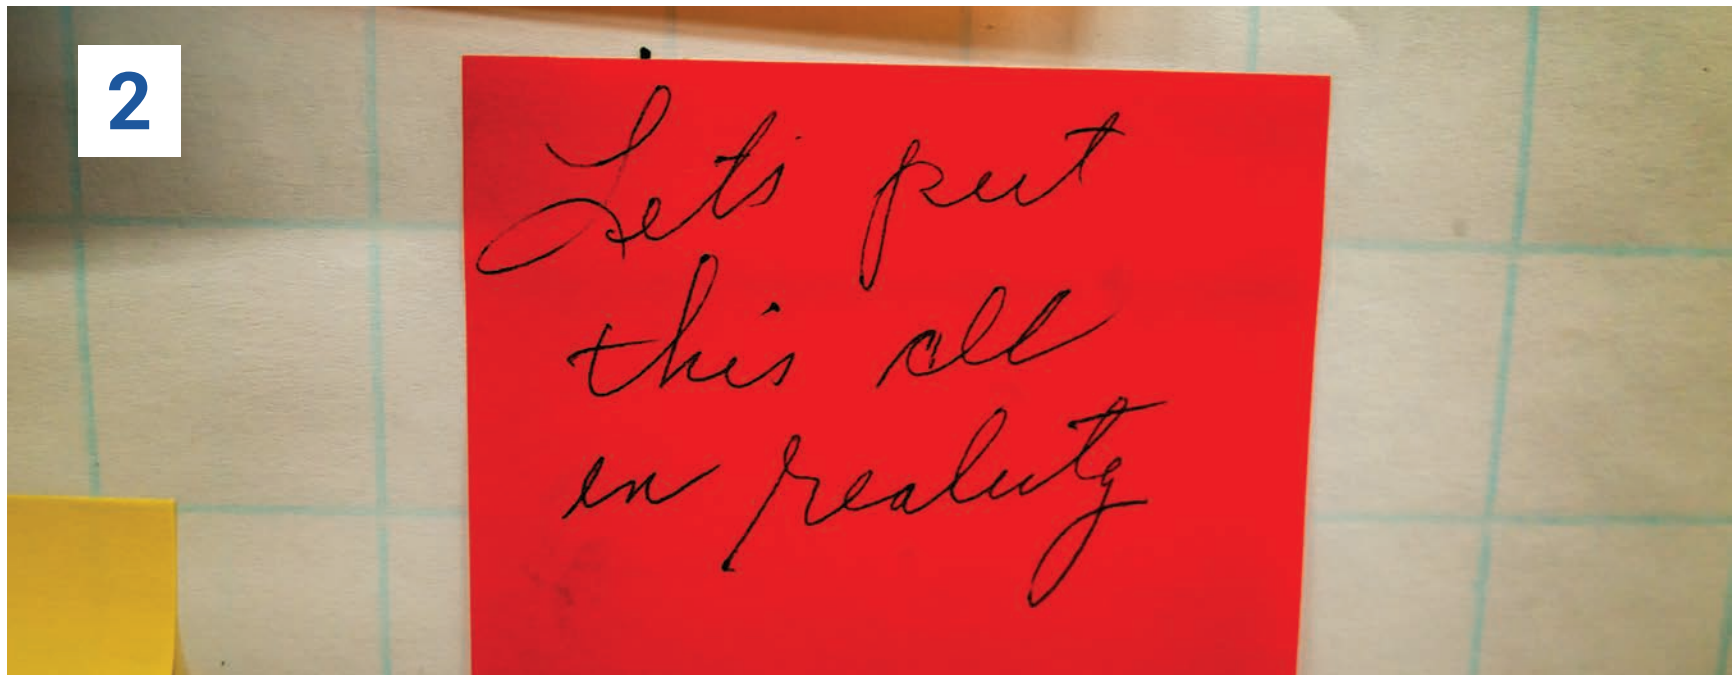 2
Let's put
this all
in reality